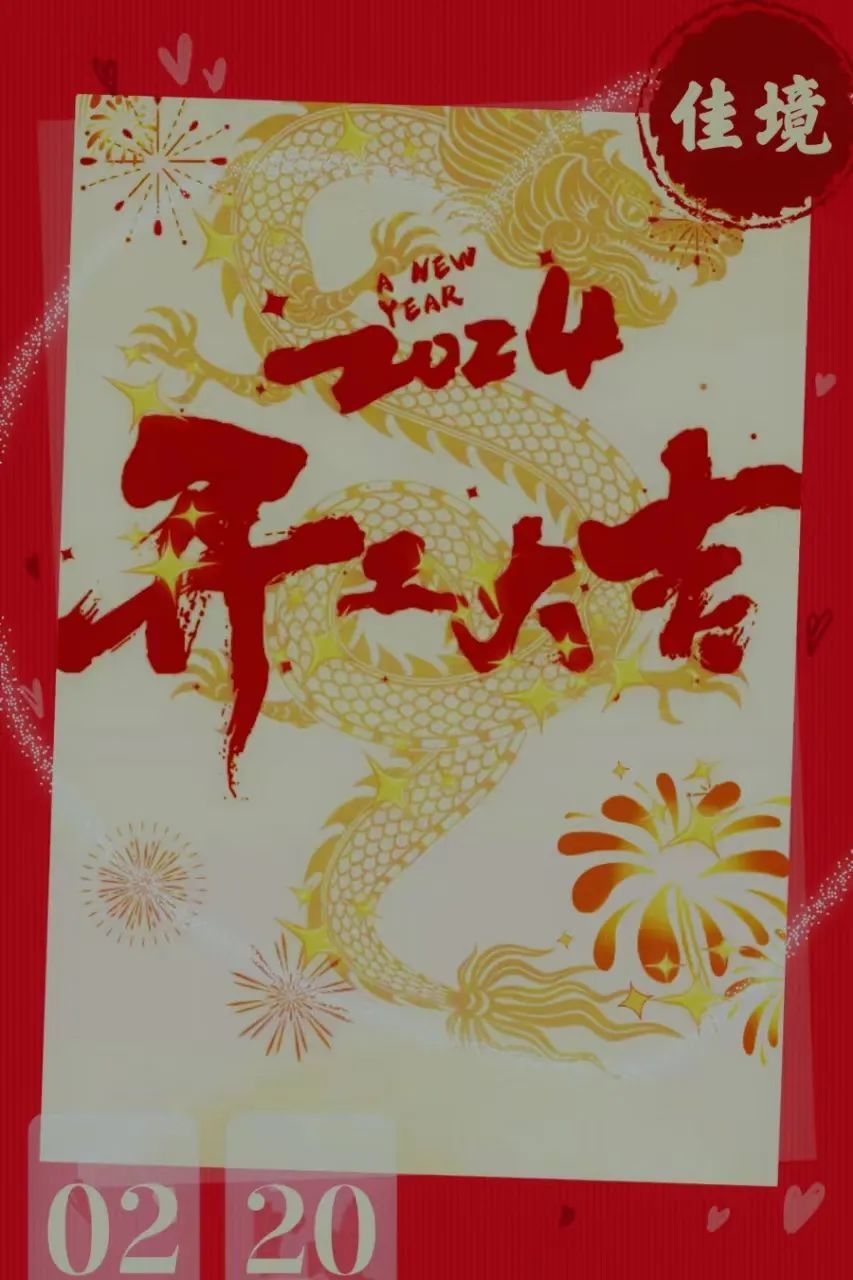 佳境
A NEW
YEAR
2024
开工大吉
02 20